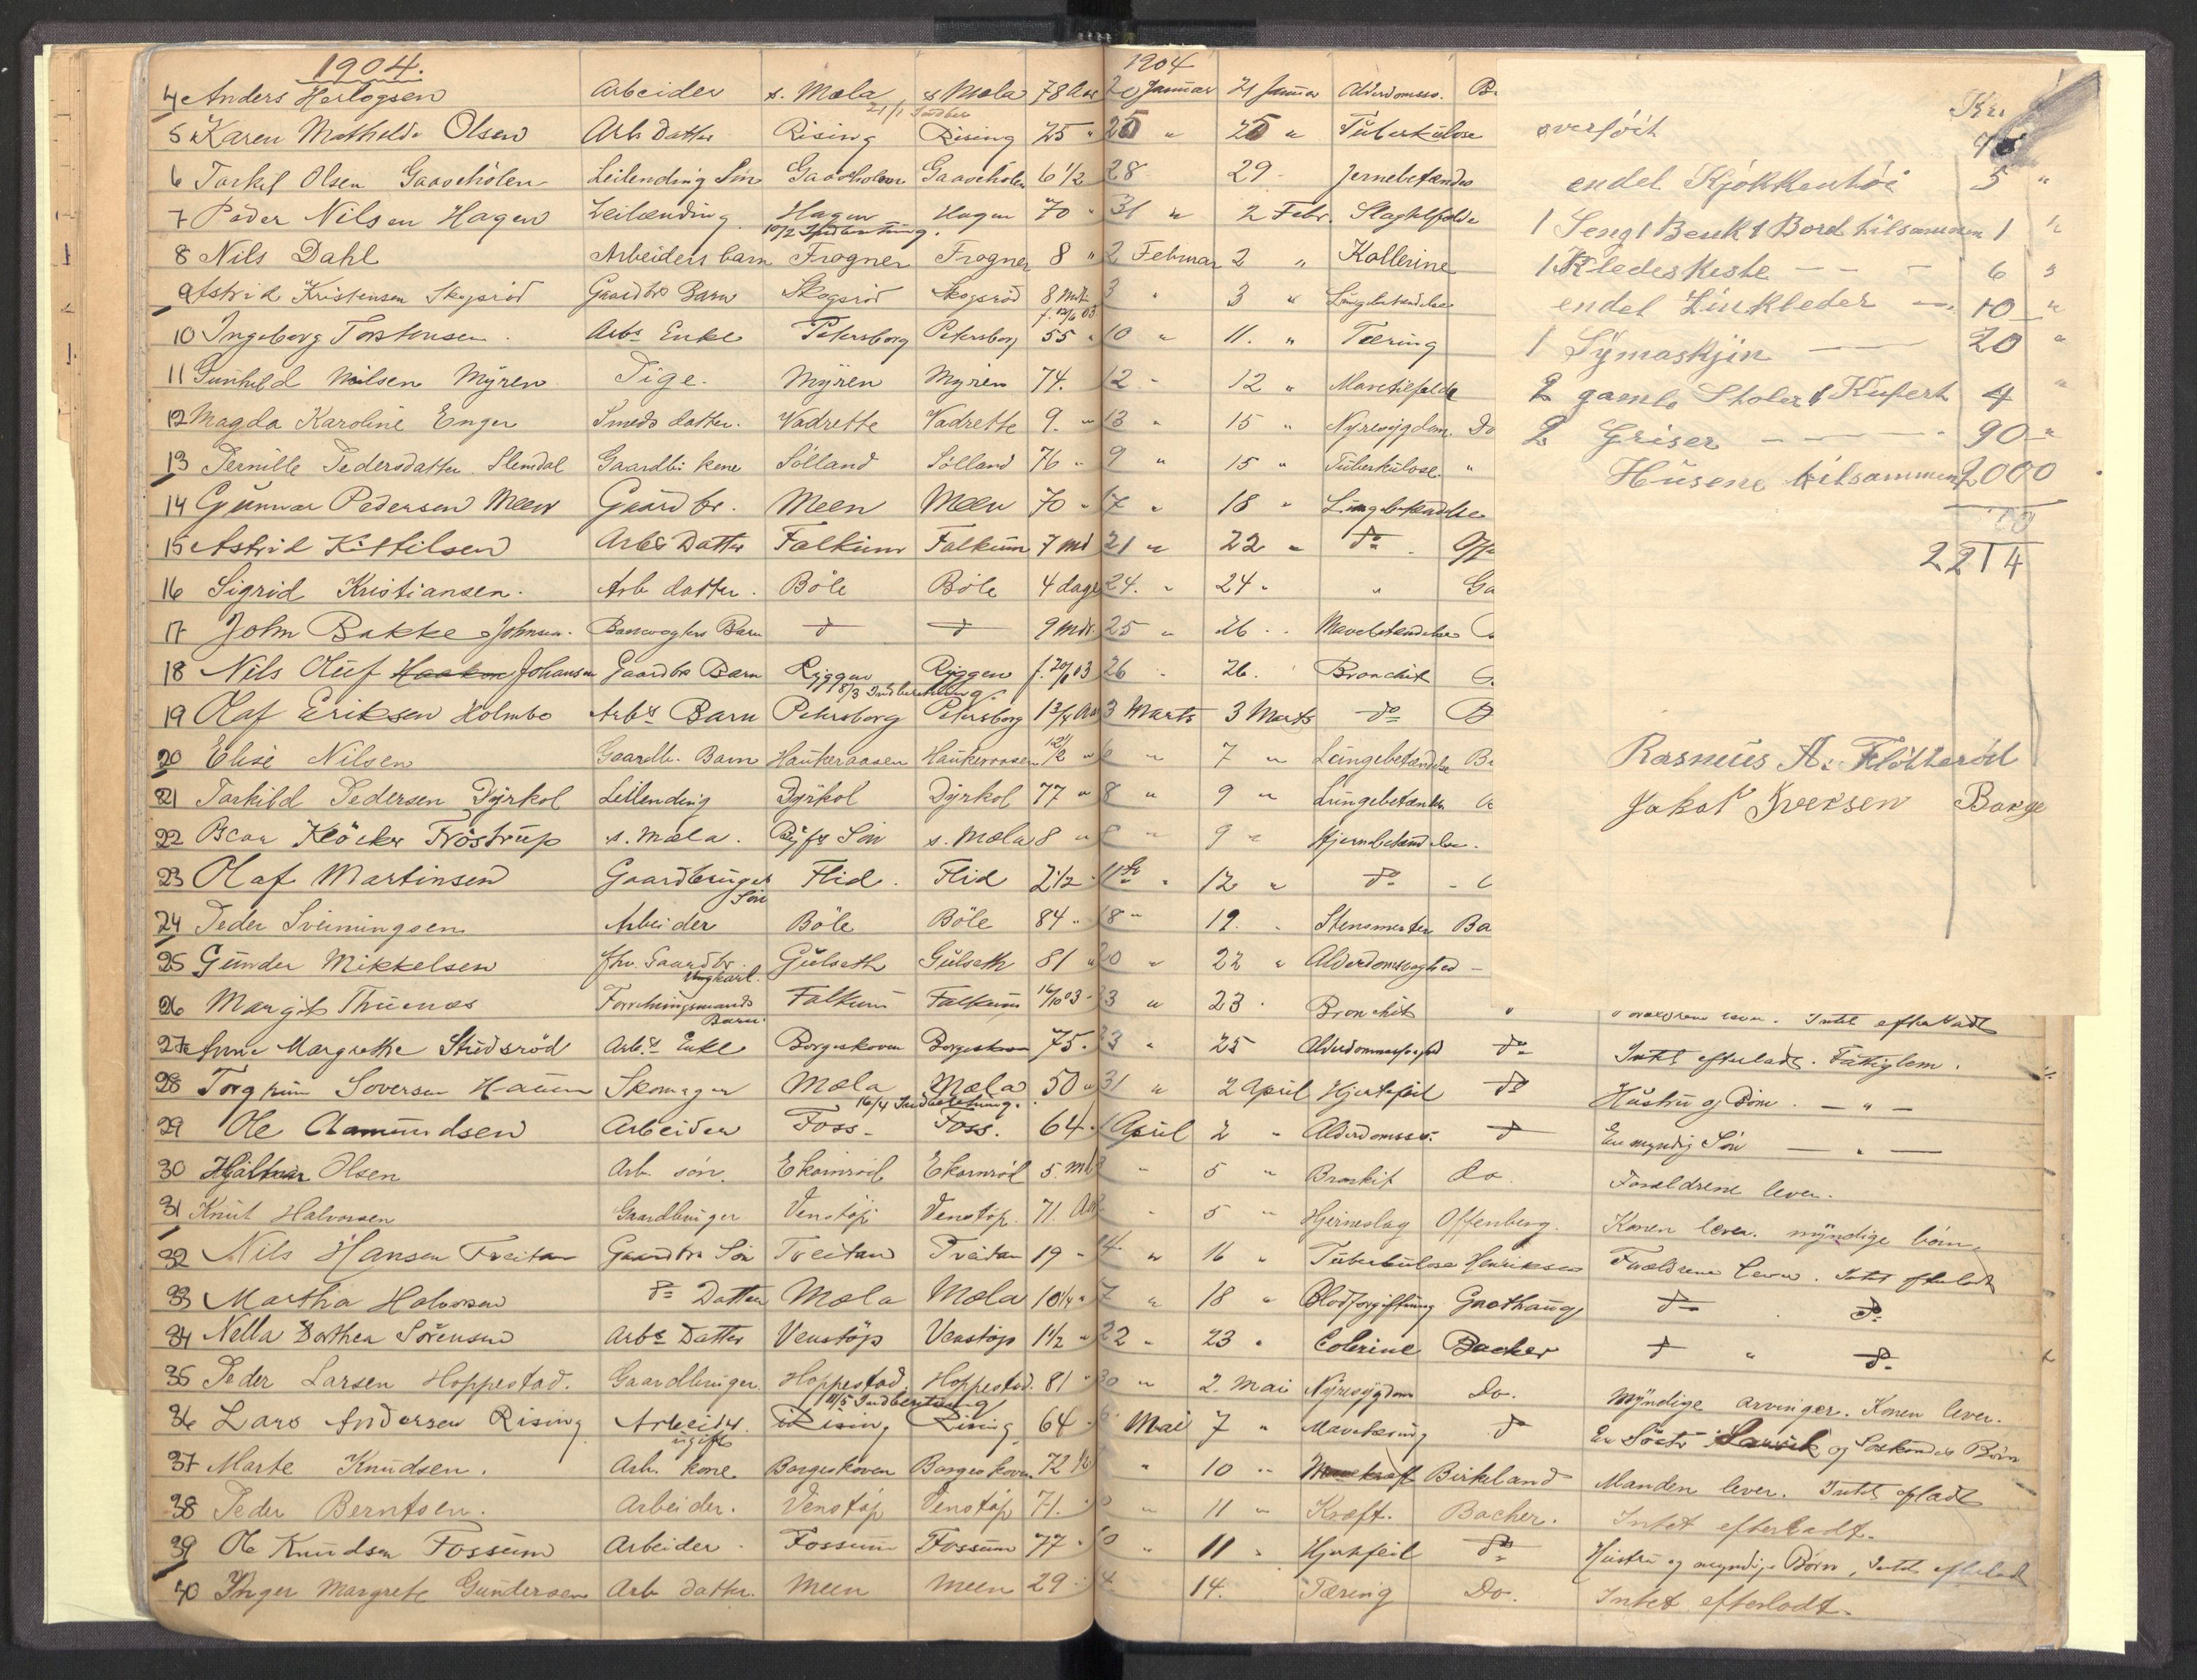 1904.
1904
4 Anders Hertogsen Arbeider s. Mæla s. Mæla 78 Aar 20 Januar 21 Januar Alderdomssv.
21/1 Indber
5 Karen Mathilde Olsen Arb Datter Rising Rising 25 " 25 " 25 " Tuberkulose
6 Torkil Olsen Gaaseholen Leilending Søn Gaaseholen Gaaseholen 6 1/2 28 29 - Jernebetændes
7 Peder Nilsen Hagen Leilænding Hagen Hagen 70 " 31 " 2 Febr. Slagtilfælde
10/2 Indberetning.
8 Nils Dahl Arbeiders barn Frogner Frogner 8 " 2 Februar 2 " Kollerine
9 Astrid Kristensen Skogsrød Gaardbr Barn Skogsrød Skogsrød 8 Mdr 3 " 3 " Lungebetændelse
f. 12/6 03
10 Ingeborg Torstensen. Arbs Enke Petersborg Petersborg 55 " 10 " 11. " Tæring
11 Gunhild Nilsen Myren Pige. Myren Myren 74. 12 - 12 " Mavetilfælde
12 Magda Karoline Enger Smeds datter. Vadrette Vadrette 9. " 13 " 15 " Nyresygdom. Do
13 Pernille Pedersdatter Slemdal Gaardbr. kone Sølland Sølland 76 " 9 " 15 " Tuberkulose "
14 Gunnar Pedersen Meen Gaardbr. Meen Meen 70 " 17 " 18 " Lungebetændelse
15 Astrid Kittilsen Arbs Datter Falkum Falkum 7 md 21 " 22 " do
16 Sigrid Kristiansen. Arb datter. Bøle Bøle 4 dage 24. " 24 " "
17 John Bakke Johnsen. Banevogters Barn do do 9 mdr. 25 " 26 " Mavebetændelse
18 Nils Oluf Johansen Gaardbr Barn Ryggen Ryggen f. 20/6 03 26 " 26. Bronchit
8/3 Indberetning.
19 Olaf Eriksen Holmbo Arbs Barn Petersborg Petersborg 1 3/4 Aar 3 Marts 3 Marts do
20 Elise Nilsen Gaardb. Barn Haukeraasen Haukeraasen 1/2 " 6 " 7 " Lungebetændelse
21 Torkild Pedersen Dyrkol Leilending Dyrkol Dyrkol 77 " 8 " 9 " Lungebetændelse
22 Klöcker Fröstrup s. Mæla. Søn s. Mæla 8 " 8 " 9 " Hjernebetændelse.
23 Olaf Martinsen Gaardbruger Søn Flid. Flid 2 1/2 " 11te " 12 " do
24 Peder Sveinungsen Arbeider Bøle Bøle 84 " 18 " 19. " Stensmerter Ba
25 Gunder Mikkelsen fhv. Gaardbr. Ungkarl. Gulseth Gulseth 81 " 20 " 22 " Alderdomssvaghed -
26 Margit Thunæs Forretningsmands Barn. Falkum Falkum 16/10 03 " 23 " 23. Bronchit " Forældrene lever. Intet efterladt
27 Anne Margrethe Studsrød Arbs Enke Borgeskoven Borgeskoven 75. 23 " 25 Alderdomssvaghed do Intet efterladt. Fattiglem.
28 Torgrim Soversen Skomager Mæla Mæla 50 " 31 " 2 April Hjertefeil do Hustru og Børn. - " -
16/4 Indberetning.
29 Ole Aamundsen Arbeider Foss - Foss. 64. 1 April 2 " Alderdomssv. do En myndig Søn - " -
30 Hjalmar Olsen Arb. søn. Ekornrød Ekornrød 5. Md. " 5 " Bronkit do. Forældrene lever.
31 Knut Halvorsen Gaardbruger Venstøp Venstøp. 71. Aar " 5 " Hjerneslag Offenberg. Konen lever. myndige børn.
32 Nils Hansen Treitan Gaardbr Søn Treitan Treitan 19 " 14 " 16 " Tuberkulose Henriksen Forældrene lever. Intet efterladt
33 Martha Halvorsen do Datter Mæla Mæla 10 1/4 " 17 " 18 " Blodforgiftning Grothaug do do
34 Nella Dorthea Sørensen Arbs Datter Venstøp Venstøp 1 1/2 " 22 " 23 " Colerine Backer do " do
35 Peder Larsen Hoppestad. Gaardbruger. Hoppestad. Hoppestad. 81 " 30 " 2. Mai Nyresygdom Do. Myndige arvinger. Konen lever.
11/5 Indberetning
36 Lars Andersen Rising Arbeider. ugift Rising Rising 64 6 Mai 7 " Mavetæring do En Søster og Søskendes Børn
37 Marte Knudsen. Arb. kone Borgeskoven Borgeskoven 72 " 10 " Birkeland Manden lever. Intet efladt
38 Peder Berntsen. Arbeider. Venstøp Venstøp 71. " 11 " Kræft. Backer. Intet efterladt.
39 Ole Knudsen Fossum Arbeider Fossum Fossum 77 " 10 " 11 " Hjertefeil do Hustru og myndige Børn, Intet efterladt
40 Inger Margrete Gundersen Arb datter. Meen Meen 29 " 14. Tæring Do. Intet efterladt.
Kr.
overført
endel Kjøkkentøi 5 "
1 Seng 1 Benk 1 Bord tilsammen 1 "
1 Kledeskiste - - - 6 "
endel Linkleder - 10 "
1 Symaskjin - 20 "
2 gamle Stoler 1 Kufert 4 "
2 Griser - - - - 90 "
Husene tilsammen 2000
2214
Rasmus A. Fløtterød
Jakob Iversen Borge